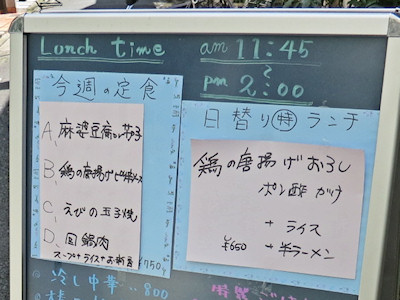 Lunch time
am 11:45
~
pm 2:00
今週の定食
A、麻婆豆腐
B、鶏の唐揚げ
C、えびの玉子焼
D、回鍋肉
スープ+ライス+お新香 ¥750
日替り特ランチ
鶏の唐揚げおろし
ポン酢かけ
+ ライス
¥650 +半ラーメン
冷し中華‥800